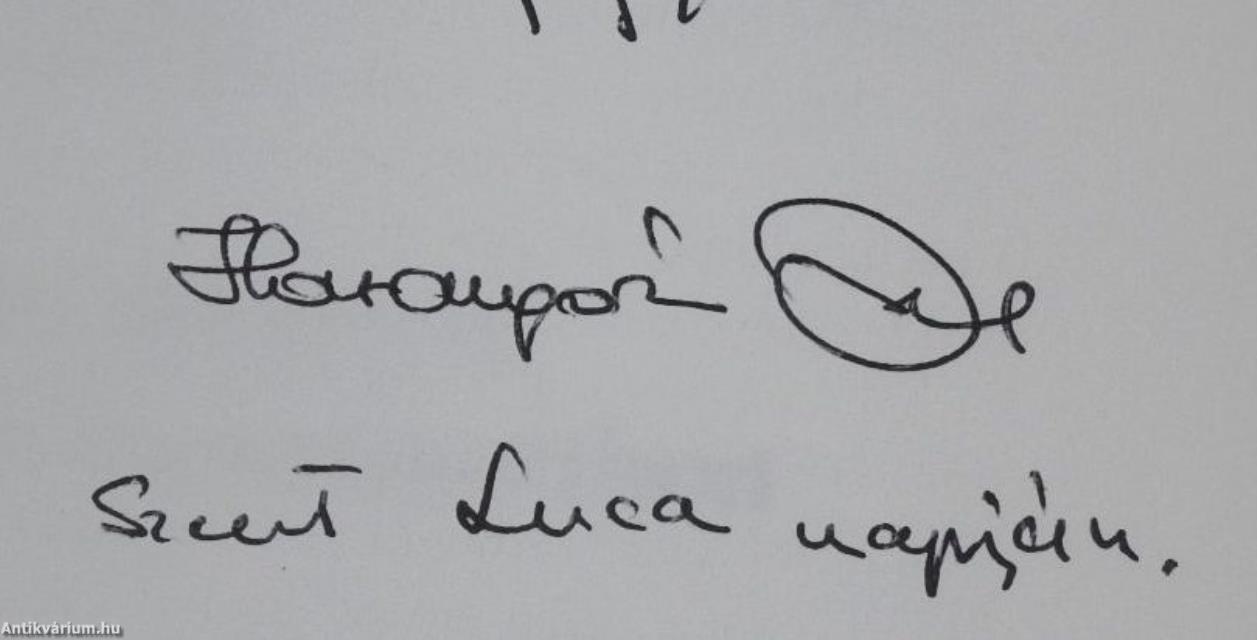 Harangozó
Szent Luca napján.
Antikvárium.hu